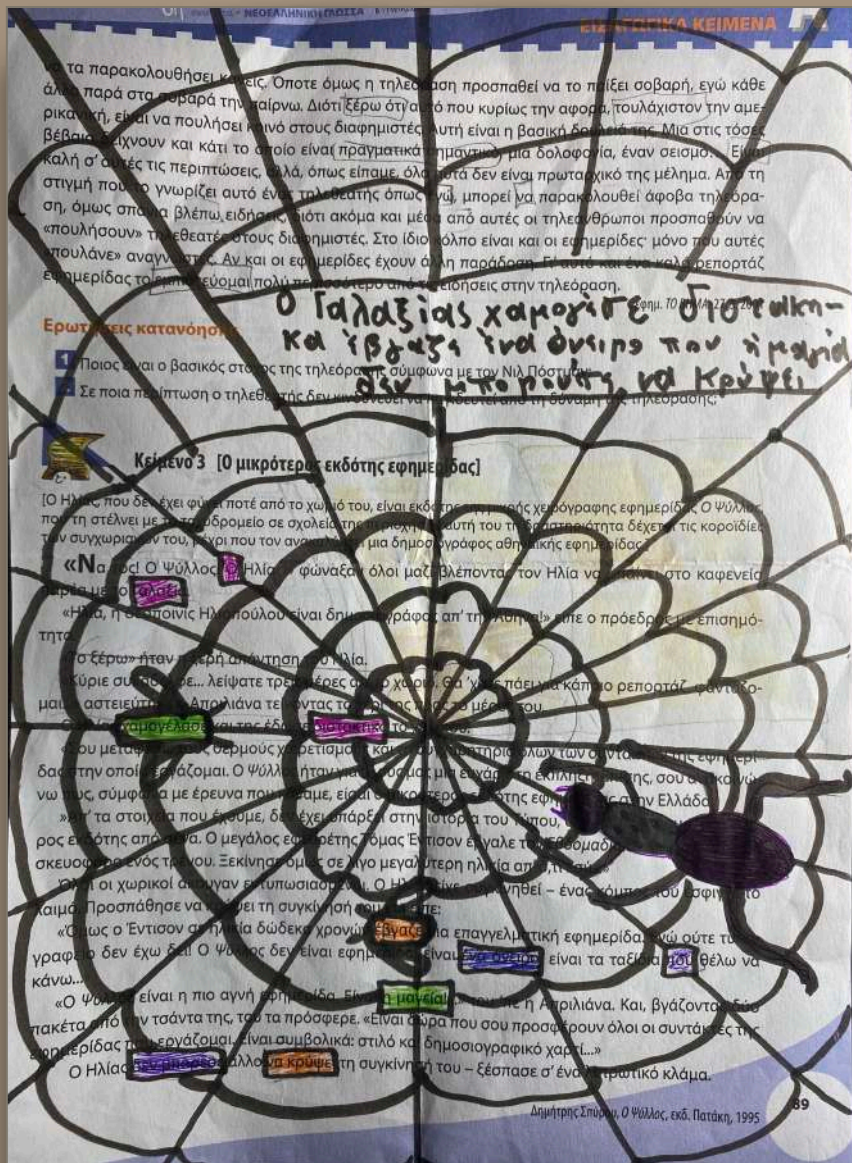 ΝΕΟΕΛΛΗΝΙΚΗ ΓΛΩΣΣΑ
ΕΙΣΑΓΩΓΙΚΑ ΚΕΙΜΕΝΑ
να τα παρακολουθήσει κανείς. Όποτε όμως η τηλεόραση προσπαθεί να το παίξει σοβαρή, εγώ κάθε
άλλο παρά στα σοβαρά την παίρνω. Διότι ξέρω ότι αυτό που κυρίως την αφορά, τουλάχιστον την αμε-
ρικανική, είναι να πουλήσει κοινό στους διαφημιστές. Αυτή είναι η βασική δουλειά της. Μια στις τόσες
βέβαια δείχνουν και κάτι το οποίο είναι πραγματικά σημαντικό, μια δολοφονία, έναν σεισμό. Είναι
καλή σ' αυτές τις περιπτώσεις, αλλά, όπως είπαμε, όλα αυτά δεν είναι πρωταρχικό της μέλημα. Από τη
στιγμή που το γνωρίζει αυτό ένας τηλεθεατής όπως εγώ, μπορεί να παρακολουθεί άφοβα τηλεόρα-
ση, όμως σπάνια βλέπω ειδήσεις, διότι ακόμα και μέσα από αυτές οι τηλεάνθρωποι προσπαθούν να
«πουλήσουν» τηλεθεατές στους διαφημιστές. Στο ίδιο κόλπο είναι και οι εφημερίδες· μόνο που αυτές
«πουλάνε» αναγνώστες. Αν και οι εφημερίδες έχουν άλλη παράδοση. Γι' αυτό και ένα καλό ρεπορτάζ
εφημερίδας το εμπιστεύομαι πολύ περισσότερο από τις ειδήσεις στην τηλεόραση.
εφημ. ΤΟ ΒΗΜΑ
Ο Γαλαξίας χαμογέλασε διστακτι-
κά έβγαζε ένα όνειρο που η μαγεία
δεν μπορούσε να κρύψει
Ερωτήσεις κατανόησης
1 Ποιος είναι ο βασικός στόχος της τηλεόρασης σύμφωνα με τον Νιλ Πόστμαν;
Σε ποια περίπτωση ο τηλεθεατής δεν κινδυνεύει να από τη δύναμη της τηλεόρασης;
Κείμενο 3 [Ο μικρότερος εκδότης εφημερίδας]
[Ο Ηλίας, που δεν έχει φύγει ποτέ από το χωριό του, είναι εκδότης της μικρής χειρόγραφης εφημερίδας Ο Ψύλλος,
που τη στέλνει με το ταχυδρομείο σε σχολεία της περιοχής. αυτή του τη δραστηριότητα δέχεται τις κοροϊδίες
των συγχωριανών του, μέχρι που τον ανακαλύπτει μια δημοσιογράφος αθηναϊκής εφημερίδας.]
«Να τος! Ο Ψύλλος! Ο Ηλίας!» φώναξαν όλοι μαζί βλέποντας τον Ηλία να μπαίνει στο καφενείο
παρέα με το Γαλαξία.
«Ηλία, η δεσποινίς Ηλιοπούλου είναι δημοσιογράφος απ' την Αθήνα!» είπε ο πρόεδρος με επισημό-
τητα.
«Το ξέρω» ήταν η ξερή απάντηση του Ηλία.
«Κύριε συνάδελφε... λείψατε τρεις μέρες απ' το χωριό. Θα 'χατε πάει για κάποιο ρεπορτάζ, φαντάζο-
μαι...» αστειεύτηκε η Απριλιάνα τείνοντας το χέρι της προς το μέρος του.
Ο Ηλίας χαμογέλασε και της έδωσε διστακτικά το
«Σου μεταφέρω τους θερμούς χαιρετισμούς και τα συγχαρητήρια όλων των συντακτών της εφημερί-
δας στην οποία εργάζομαι. Ο Ψύλλος ήταν για όλους μας μια ευχάριστη έκπληξη. Επίσης, σου ανακοινώ-
νω πως, σύμφωνα με έρευνα που κάναμε, είσαι ο μικρότερος εκδότης εφημερίδας στην Ελλάδα.
»Απ' τα στοιχεία που έχουμε, δεν έχει υπάρξει στην ιστορία του Τύπου,
ρος εκδότης από σένα. Ο μεγάλος εφευρέτης Τόμας Έντισον έβγαλε το
σκευοφόρο ενός τρένου. Ξεκίνησε όμως σε λίγο μεγαλύτερη ηλικία απ' ό,τι εσύ.»
Όλοι οι χωρικοί άκουγαν εντυπωσιασμένοι. Ο Ηλίας είχε συγκινηθεί – ένας κόμπος του έσφιγγε το
λαιμό. Προσπάθησε να κρύψει τη συγκίνησή του και είπε:
«Όμως ο Έντισον σε ηλικία δώδεκα χρονών έβγαζε μια επαγγελματική εφημερίδα. Εγώ ούτε τυπο-
γραφείο δεν έχω δει! Ο Ψύλλος δεν είναι εφημερίδα, είναι ένα όνειρο, είναι τα ταξίδια που θέλω να
κάνω...»
«Ο Ψύλλος είναι η πιο αγνή εφημερίδα. Είναι η μαγεία!...» του είπε η Απριλιάνα. Και, βγάζοντας δύο
πακέτα από την τσάντα της, του τα πρόσφερε. «Είναι δώρα που σου προσφέρουν όλοι οι συντάκτες της
εφημερίδας που εργάζομαι. Είναι συμβολικά: στιλό και δημοσιογραφικό χαρτί...»
Ο Ηλίας δεν μπόρεσε άλλο να κρύψει τη συγκίνησή του – ξέσπασε σ' ένα λυτρωτικό κλάμα.
Δημήτρης Σπύρου, Ο Ψύλλος, εκδ. Πατάκη, 1995
89